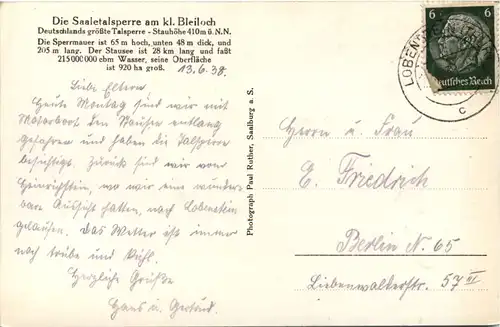 Die Saaletalsperre am kl. Bleiloch
Deutschlands größte Talsperre - Stauhöhe 410 m ü. N.N.
Die Sperrmauer ist 65 m hoch, unten 48 m dick, und
205 m lang. Der Stausee ist 28 km lang und faßt
215 000 000 cbm Wasser, seine Oberfläche
ist 920 ha groß.
13.6.38.
Liebe Eltern
Heute Montag sind wir mit
Motorboot den entlang
gefahren und haben die Talsperre
besichtigt. Zurück sind wir vom
Heinrichstein, wo wir eine wunder-
bare Aussicht hatten, nach Lobenstein
gelaufen. Das Wetter ist immer
noch trübe und kühl.
Herzliche Grüße
Hans u. Gertrud.
Photograph Paul Ruther, Saalburg a S.
6 6
Deutsches Reich
LOBENSTEIN
c
Herrn u. Frau
E. Friedrich
Berlin N. 65
Liebenwalderstr. 57 III